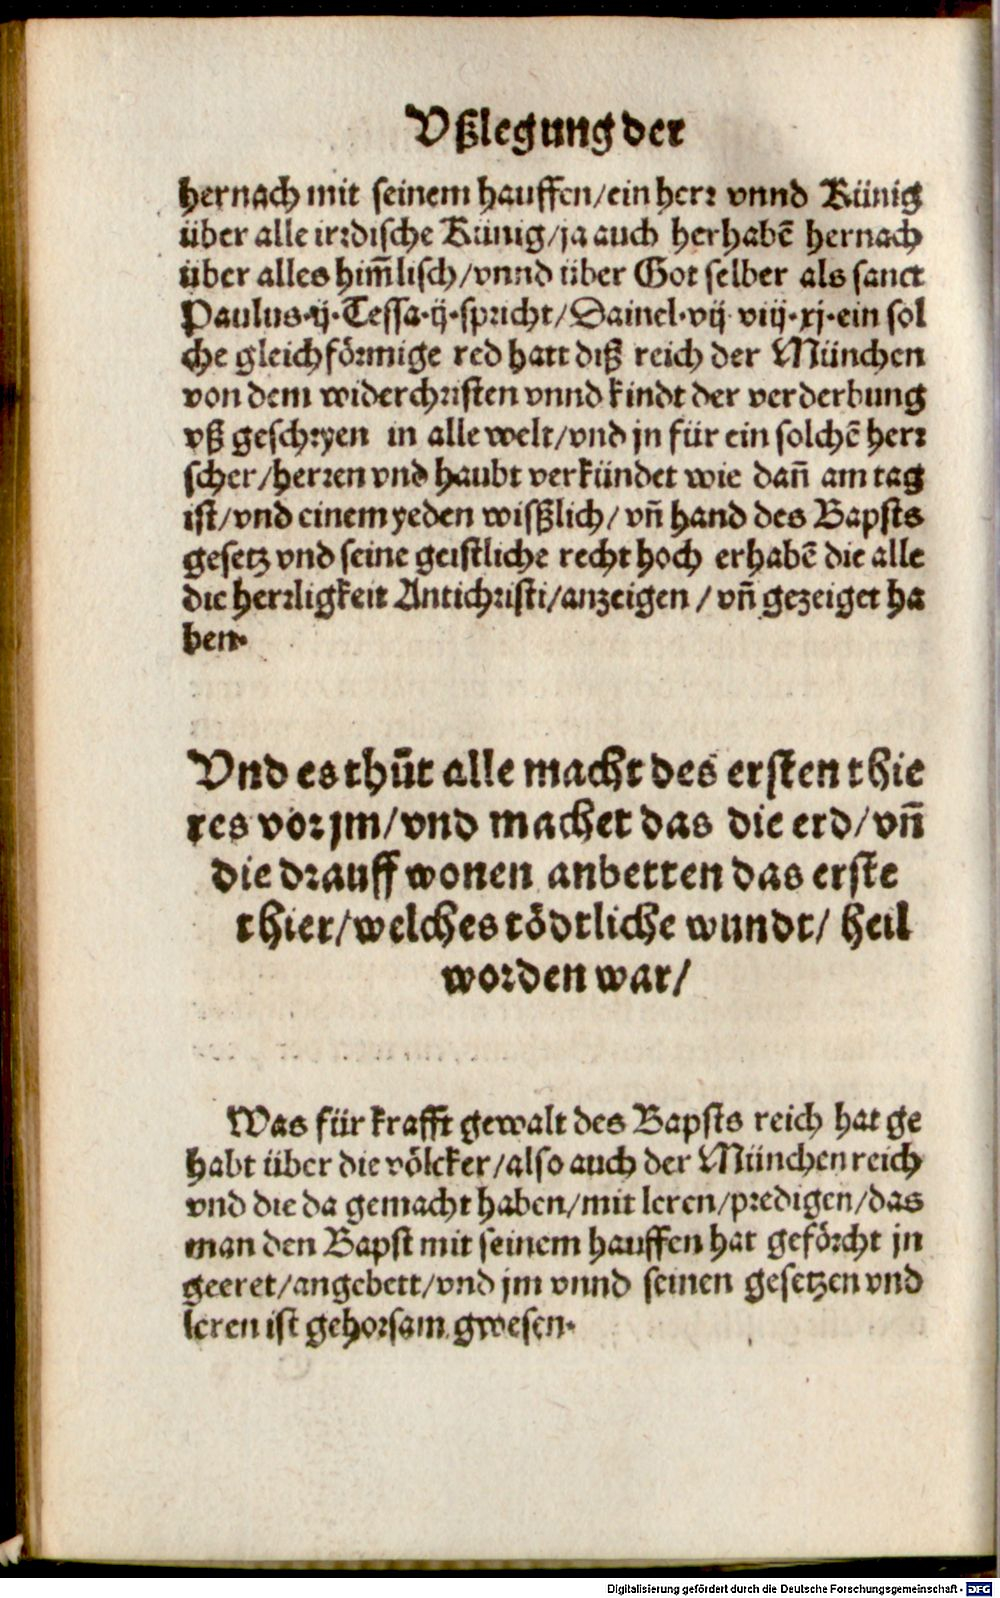 Vßlegung der
hernach mit seinem hauffen/ein herr vnnd Künig
über alle irrdische Künig/ja auch herhabē hernach
über alles him̄lisch/vnnd über Got selber als sanct
Paulus·ij·Tessa·ij·spricht/Dainel·vij viij·xj·ein sol
che gleichförmige red hatt diß reich der München
von dem widerchristen vnnd kindt der verderbung
vß geschryen in alle welt/vnd jn für ein solchē herr
scher/herren vnd haubt verkündet wie dan̄ am tag
ist/vnd einem yeden wißlich/vn̄ hand des Bapsts
gesetz vnd seine geistliche recht hoch erhabē die alle
die herrligkeit Antichristi/anzeigen/vn̄ gezeiget ha
ben·
Vnd es thūt alle macht des ersten thie
res vor jm/vnd machet das die erd/vn̄
die drauff wonen anbetten das erste
thier/welches tödtliche wundt/heil
worden war/
Was für krafft gewalt des Bapsts reich hat ge
habt über die völcker/also auch der München reich
vnd die da gemacht haben/mit leren/predigen/das
man den Bapst mit seinem hauffen hat geförcht jn
geeret/angebett/vnd jm vnnd seinen gesetzen vnd
leren ist gehorsam gwesen·
Digitalisierung gefördert durch die Deutsche Forschungsgemeinschaft - DFG